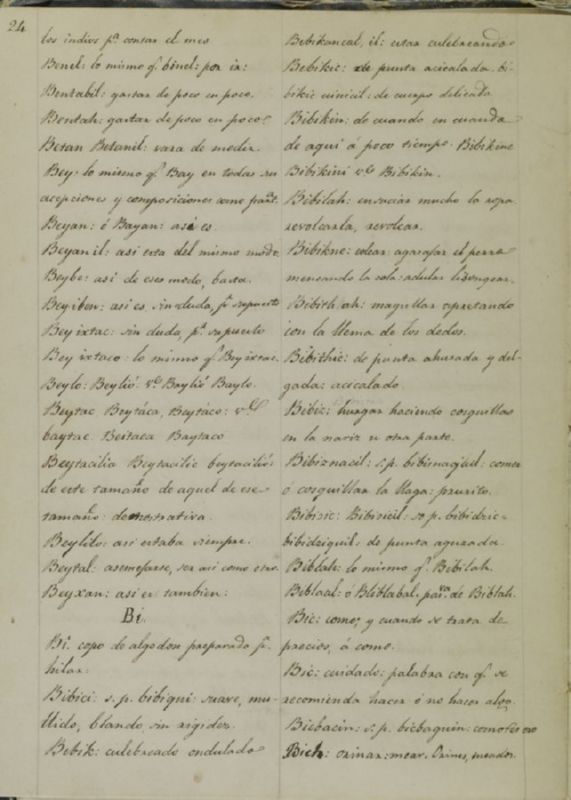 24
los indios pa. contar el mes
Benel: lo mismo q. binel: por ir:
Bentabil: gastar de poco en poco.
Bentah: gastar de poco en poco.
Betan Betanil: vara de medir.
Bey. lo mismo q. Bay en todas sus
acepciones y composiciones como
Beyan: ó Bayan: asi es
Beyanil: asi esta del mismo modo.
Beybe: asi de ese modo, basta.
Beyiben: asi es, sin duda, supuesto
Bey ixtac: sin duda, pr. supuesto
Bey ixtaco: lo mismo q. Bey ixtac.
Beylo: Beylió ve. Baylió Baylo.
Beytac Beytáca, Beytáco: ve.
baytac. Beitaca Baytaco
Beytacilia Beytacilic beytaciliió
de este tamaño de aquel de ese
tamaño: demostrativa.
Beylilo: asi estaba siempre.
Beytal: asemejarse, ser asi como eso.
Beyxan: asi es tambien:
Bi.
Bi. copo de algodon preparado pr.
hilar.
Bibici: s. p. bibiqui: suave, mu-
llido, blando, sin rigidez.
Bebik: culebreado ondulado
Bebikancal, il: estar culebreando
Bebikic: de punta acicalada. bi-
bikic uinicil: de cuerpo delicado
Bibikin: de cuando en cuando
de aqui á poco tiempo. Bibikine
Bibikini ve. Bibikin.
Bibilah: ensuciar mucho la ropa
revolcarla, revolcar.
Bibikne: colear: agasajar el perro
meneando la cola: adular lisongear.
Bibith.ah: magullar apretando
con la llema de los dedos.
Bibithic: de punta ahusada y del-
gada: acicalado.
Bibic: hurgar haciendo cosquillas
en la nariz u otra parte.
Bibiznacil: s.p. comer
ó cosquillar la llaga: prurito.
Bibizic: Bibizicil: s. p. bibidzic-
bibidziquil: de punta aguzada
Biblah: lo mismo q. Bibilah.
Biblaal: ó Bliblabal, pasva. de Biblah.
Bic: como; y cuando se trata de
precios, á como.
Bic: cuidado: palabra con q. se
recomienda hacer ó no hacer algo.
Bicbacin: s. p. bicbaquin: como
Bich: orinar: mear. Orines, meados.